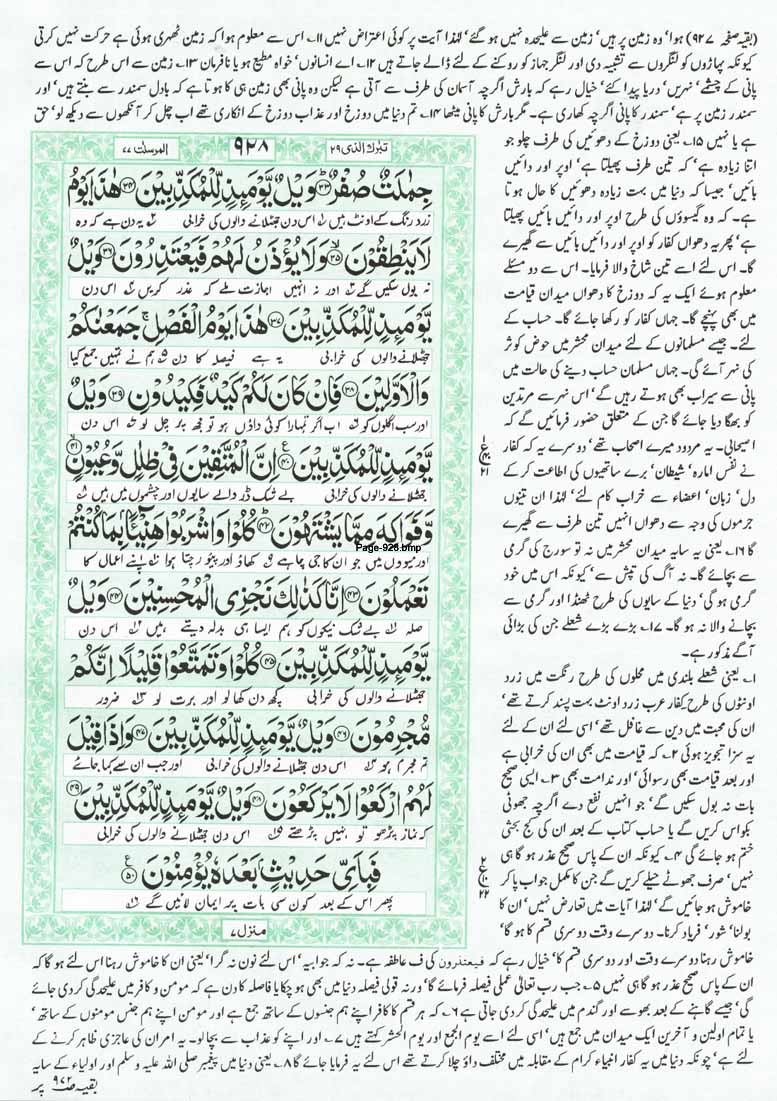 (بقیہ صفحہ ۹۲۷) ہوا' وہ زمین پر ہیں' زمین سے علیحدہ نہیں ہو گئے' لہٰذا آیت پر کوئی اعتراض نہیں ۱۱۔ اس سے معلوم ہوا کہ زمین ٹھہری ہوئی ہے حرکت نہیں کرتی
کیونکہ پہاڑوں کو لنگروں سے تشبیہ دی اور لنگر جہاز کو روکنے کے لئے ڈالے جاتے ہیں ۱۲۔ اے انسانوں' خواہ مطیع ہو یا نافرمان ۱۳۔ زمین سے اس طرح کہ اس سے
پانی کے چشمے' نہریں' دریا پیدا کئے' خیال رہے کہ بارش اگرچہ آسمان کی طرف سے آتی ہے لیکن وہ پانی بھی زمین ہی کا ہوتا ہے کہ بادل سمندر سے بنتے ہیں' اور
سمندر زمین پر ہے' سمندر کا پانی اگرچہ کھاری ہے۔ مگر بارش کا پانی میٹھا ۱۴۔ تم دنیا میں دوزخ اور عذاب دوزخ کے انکاری تھے اب چل کر آنکھوں سے دیکھ لو' حق
ہے یا نہیں ۱۵۔ یعنی دوزخ کے دھوئیں کی طرف چلو جو
اتنا زیادہ ہے' کہ تین طرف پھیلتا ہے' اوپر اور دائیں
بائیں' جیسا کہ دنیا میں بہت زیادہ دھوئیں کا حال ہوتا
ہے۔ کہ وہ گیسوؤں کی طرح اوپر اور دائیں بائیں پھیلتا
ہے' پھر یہ دھواں کفار کو اوپر اور دائیں بائیں سے گھیرے
گا۔ اس لئے اسے تین شاخ والا فرمایا۔ اس سے دو مسئلے
معلوم ہوئے ایک یہ کہ دوزخ کا دھواں میدان قیامت
میں بھی پہنچے گا۔ جہاں کفار کو رکھا جائے گا۔ حساب کے
لئے۔ جیسے مسلمانوں کے لئے میدان محشر میں حوض کوثر
کی نہر آئے گی۔ جہاں مسلمان حساب دینے کی حالت میں
پانی سے سیراب بھی ہوتے رہیں گے' اس نہر سے مرتدین
کو بھگا دیا جائے گا جن کے متعلق حضور فرمائیں گے کہ
اصیحابی۔ یہ مردود میرے اصحاب تھے' دوسرے یہ کہ کفار
نے نفس امارہ' شیطان' برے ساتھیوں کی اطاعت کر کے
دل' زبان' اعضاء سے خراب کام لئے' لہٰذا ان تینوں
جرموں کی وجہ سے دھواں انہیں تین طرف سے گھیرے
گا ۱۶۔ یعنی یہ سایہ میدان محشر میں نہ تو سورج کی گرمی
سے بچائے گا۔ نہ آگ کی تپش سے' کیونکہ اس میں خود
گرمی ہو گی' دنیا کے سایوں کی طرح ٹھنڈا اور گرمی سے
بچانے والا نہ ہو گا۔ ۱۷۔ بڑے بڑے شعلے جن کی بڑائی
آگے مذکور ہے۔
۱۔ یعنی شعلے بلندی میں محلوں کی طرح رنگت میں زرد
اونٹوں کی طرح' کفار عرب زرد اونٹ بہت پسند کرتے تھے'
ان کی محبت میں دین سے غافل تھے' اسی لئے ان کے لئے
یہ سزا تجویز ہوئی ۲۔ کہ قیامت میں بھی ان کی خرابی ہے
اور بعد قیامت بھی رسوائی' اور ندامت بھی ۳۔ ایسی صحیح
بات نہ بول سکیں گے' جو انہیں نفع دے اگرچہ جھوٹی
بکواس کریں گے یا حساب کتاب کے بعد ان کی کج بحثی
ختم ہو جائے گی ۴۔ کیونکہ ان کے پاس صحیح عذر ہو گا ہی
نہیں' صرف جھوٹے حیلے کریں گے جن کا مکمل جواب پا کر
خاموش ہو جائیں گے' لہٰذا آیات میں تعارض نہیں' ان کا
بولنا' شور' فریاد کرنا۔ دوسرے وقت دوسری قسم کا ہو گا'
تبٰرک الذی ۲۹
۹۲۸
المرسلٰت ۷۷
جِمٰلَتٌ صُفْرٌ ﴿۳۳﴾ وَيْلٌ يَّوْمَئِذٍ لِّلْمُكَذِّبِيْنَ ﴿۳۴﴾ هٰذَا يَوْمُ
زرد رنگ کے اونٹ ہیں اس دن جھٹلانے والوں کی خرابی یہ دن ہے کہ وہ
لَا يَنْطِقُوْنَ ﴿۳۵﴾ وَلَا يُؤْذَنُ لَهُمْ فَيَعْتَذِرُوْنَ ﴿۳۶﴾ وَيْلٌ
نہ بول سکیں گے اور نہ انہیں اجازت ملے کہ عذر کریں اس دن
يَّوْمَئِذٍ لِّلْمُكَذِّبِيْنَ ﴿۳۷﴾ هٰذَا يَوْمُ الْفَصْلِ ۚ جَمَعْنٰكُمْ
جھٹلانے والوں کی خرابی یہ ہے فیصلہ کا دن ہم نے تمہیں جمع کیا
وَالْاَوَّلِيْنَ ﴿۳۸﴾ فَاِنْ كَانَ لَكُمْ كَيْدٌ فَكِيْدُوْنِ ﴿۳۹﴾ وَيْلٌ
اور سب اگلوں کو اب اگر تمہارا کوئی داؤں ہو تو مجھ پر چل لو اس دن
يَّوْمَئِذٍ لِّلْمُكَذِّبِيْنَ ﴿۴۰﴾ اِنَّ الْمُتَّقِيْنَ فِيْ ظِلٰلٍ وَّعُيُوْنٍ ﴿۴۱﴾
جھٹلانے والوں کی خرابی بے شک ڈر والے سایوں اور چشموں میں ہیں
وَّفَوَاكِهَ مِمَّا يَشْتَهُوْنَ ﴿۴۲﴾ كُلُوْا وَاشْرَبُوْا هَنِيْٓـًٔا بِمَا كُنْتُمْ
Page-928.bmp
اور میووں میں جو ان کا جی چاہے کھاؤ اور پیو رچتا ہوا اپنے اعمال کا
تَعْمَلُوْنَ ﴿۴۳﴾ اِنَّا كَذٰلِكَ نَجْزِي الْمُحْسِنِيْنَ ﴿۴۴﴾ وَيْلٌ
صلہ بے شک نیکوں کو ہم ایسا ہی بدلہ دیتے ہیں اس دن
يَّوْمَئِذٍ لِّلْمُكَذِّبِيْنَ ﴿۴۵﴾ كُلُوْا وَتَمَتَّعُوْا قَلِيْلًا اِنَّكُمْ
جھٹلانے والوں کی خرابی کچھ دن کھا لو اور برت لو ضرور
مُّجْرِمُوْنَ ﴿۴۶﴾ وَيْلٌ يَّوْمَئِذٍ لِّلْمُكَذِّبِيْنَ ﴿۴۷﴾ وَاِذَا قِيْلَ
تم مجرم ہو اس دن جھٹلانے والوں کی خرابی اور جب ان سے کہا جائے
لَهُمُ ارْكَعُوْا لَا يَرْكَعُوْنَ ﴿۴۸﴾ وَيْلٌ يَّوْمَئِذٍ لِّلْمُكَذِّبِيْنَ ﴿۴۹﴾
کہ نماز پڑھو تو نہیں پڑھتے اس دن جھٹلانے والوں کی خرابی
فَبِاَيِّ حَدِيْثٍۭ بَعْدَهٗ يُؤْمِنُوْنَ ﴿۵۰﴾
پھر اس کے بعد کون سی بات پر ایمان لائیں گے
منزل ۷
خاموش رہنا دوسرے وقت اور دوسری قسم کا' خیال رہے کہ فیعتذرون کی ف عاطفہ ہے۔ نہ کہ جوابیہ' اس لئے نون نہ گرا' یعنی ان کا خاموش رہنا اس لئے ہو گا کہ
ان کے پاس صحیح عذر ہو گا ہی نہیں ۵۔ جب رب تعالیٰ عملی فیصلہ فرمائے گا' ورنہ قولی فیصلہ دنیا میں بھی ہو چکا یا فاصلہ کا دن ہے کہ مومن و کافر میں علیحدگی کر دی جائے
گی' جیسے گاہنے کے بعد بھوسے اور گندم میں علیحدگی کر دی جاتی ہے ۶۔ کہ ہر قسم کا کافر اپنے ہم جنسوں کے ساتھ جمع ہے اور مومن اپنے ہم جنس مومنوں کے ساتھ'
یا تمام اولین و آخرین ایک میدان میں جمع ہیں' اسی لئے اسے یوم الجمع اور یوم الحشر کہتے ہیں ۷۔ اور اپنے کو عذاب سے بچا لو۔ یہ امر ان کی عاجزی ظاہر کرنے کے
لئے ہے' چونکہ دنیا میں یہ کفار انبیاء کرام کے مقابلہ میں مختلف داؤ چلا کرتے تھے اس لئے یہ فرمایا جائے گا ۸۔ یعنی دنیا میں پیغمبر صلی اللہ علیہ وسلم اور اولیاء کے سایہ
بقیہ صفحہ ۹۷۲ پر